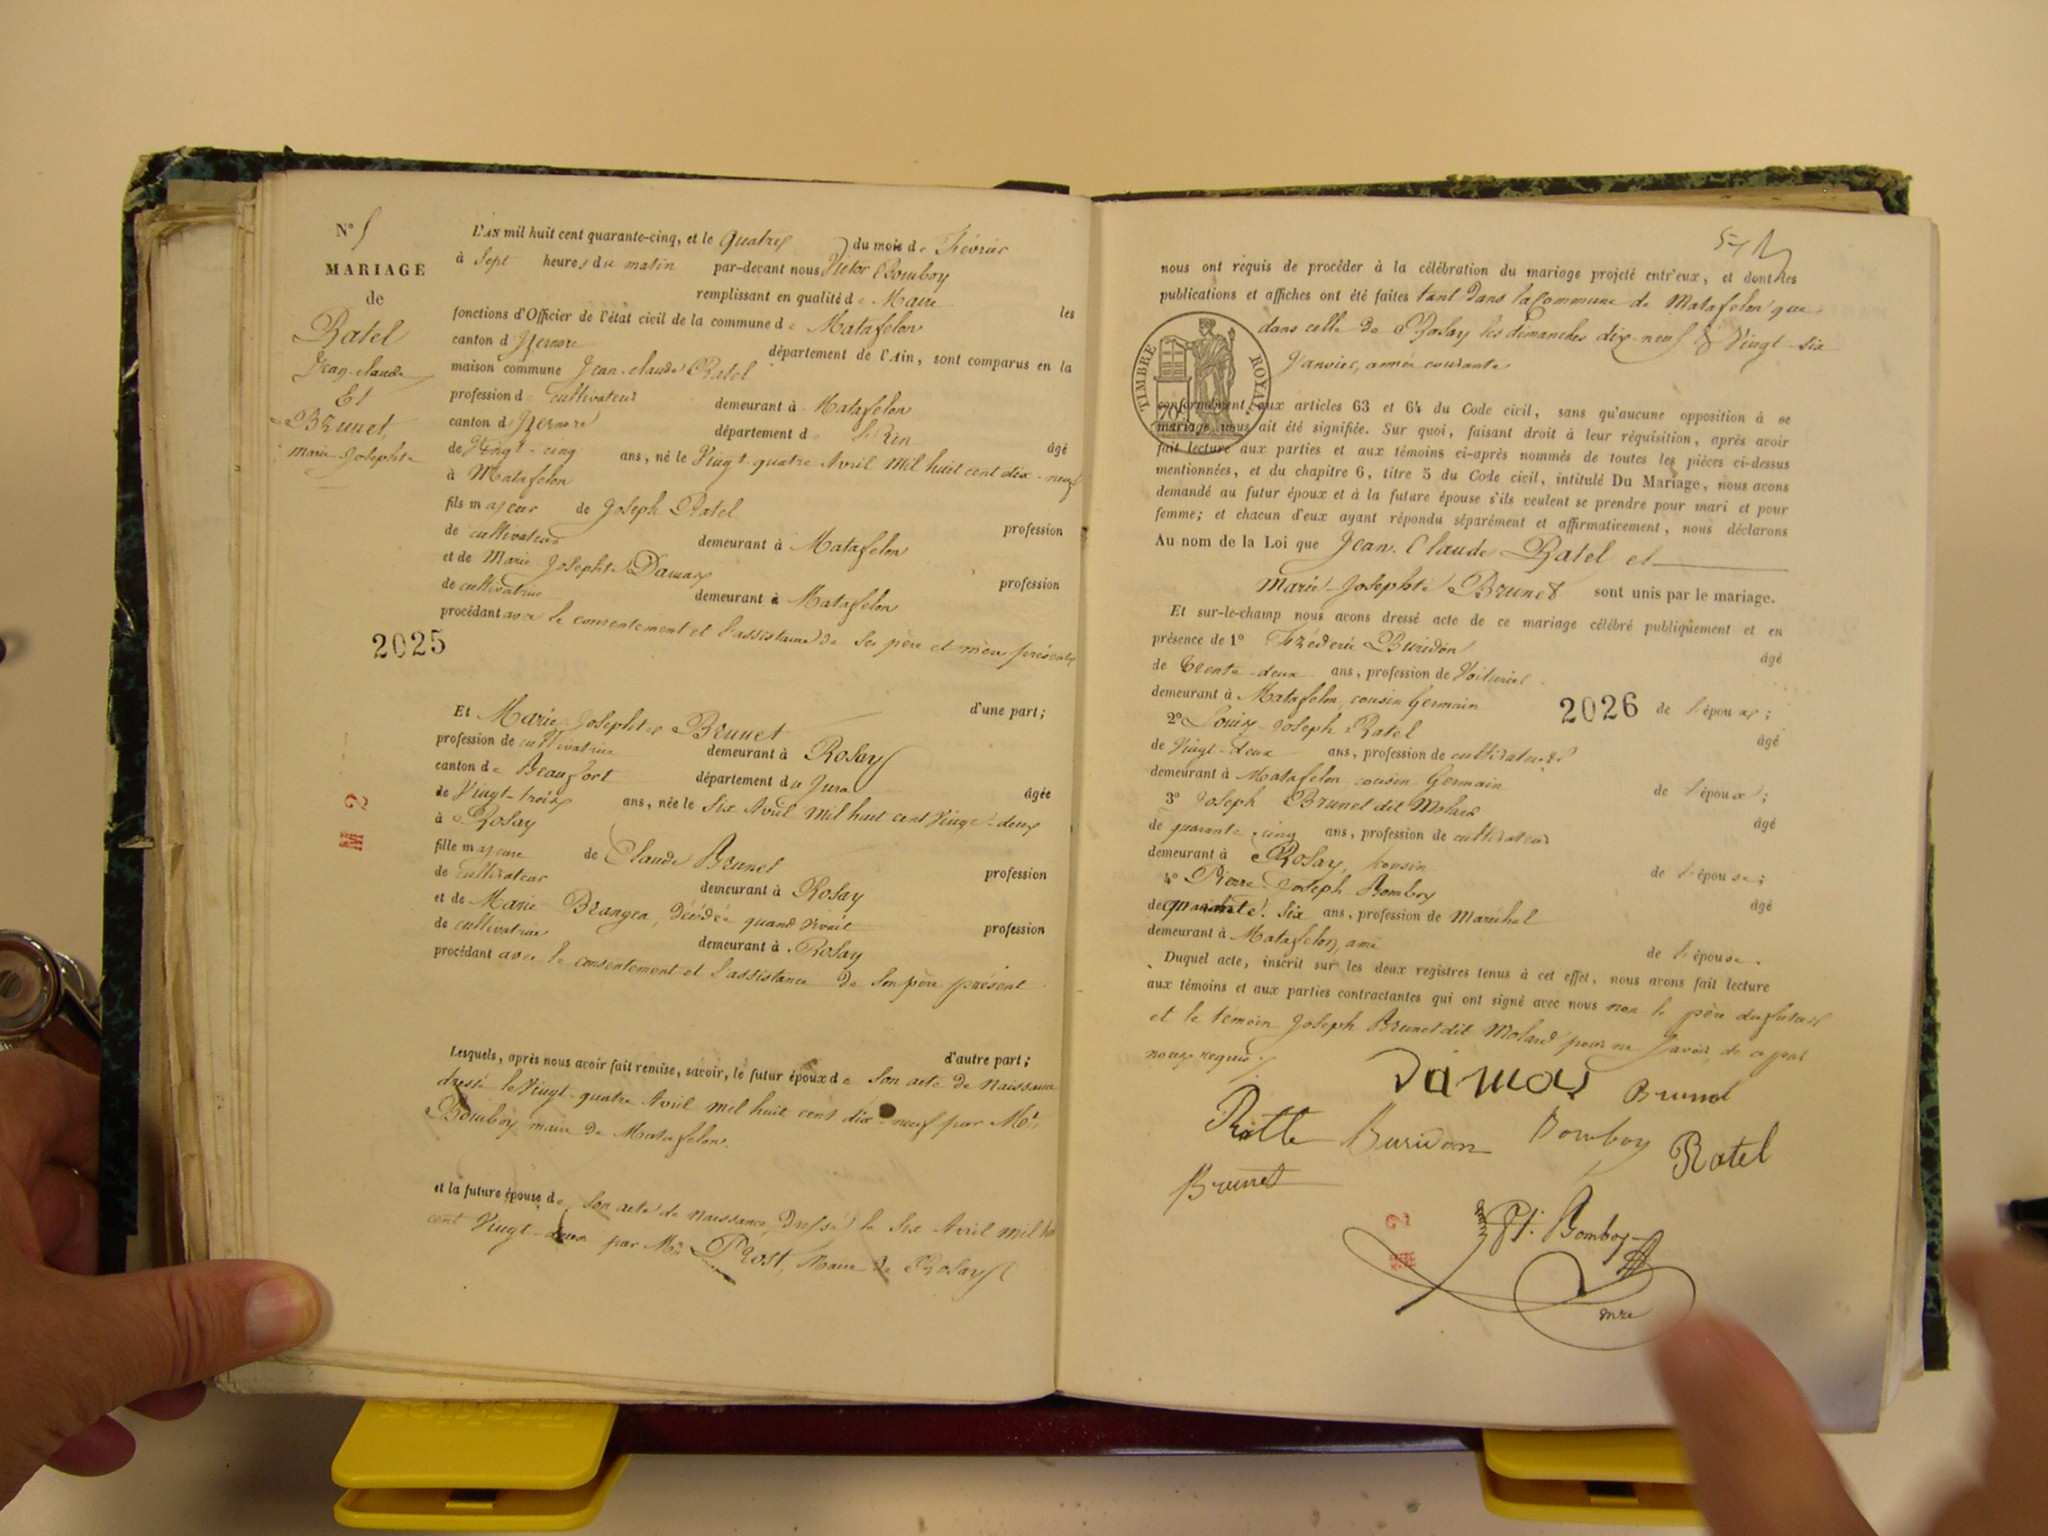 N° 5
MARIAGE
de
Ratel
Jean-claude
Et
Brunet,
marie Josephte
L'AN mil huit cent quarante-cinq, et le quatre du mois de Février
à sept heures du matin par-devant nous Victor Bomboy
remplissant en qualité de Maire les
fonctions d'Officier de l'état civil de la commune de Matafelon
canton d'Izernore département de l'Ain, sont comparus en la
maison commune Jean-claude Ratel
profession de cultivateur demeurant à Matafelon
canton d'Izernore département de l'Ain âgé
de Vingt-cinq ans, né le Vingt-quatre Avril mil huit cent dix-neuf
à Matafelon
fils majeur de Joseph Ratel profession
de cultivateur demeurant à Matafelon
et de Marie Josephte Damas profession
de cultivatrice demeurant à Matafelon
procédant avec le consentement et l'assistance de ses père et mère présents
2025
d'une part;
Et Marie-Josephte Brunet
profession de cultivatrice demeurant à Rosay
canton de Beaufort département du Jura âgée
de Vingt-trois ans, née le Six Avril mil huit cent Vingt-deux
à Rosay
fille majeure de Claude Brunet profession
de cultivateur demeurant à Rosay
et de Marie Brangea, décédée quand vivait profession
de cultivatrice demeurant à Rosay
procédant avec le consentement et l'assistance de son père présent
M 2
d'autre part;
Lesquels, après nous avoir fait remise, savoir, le futur époux de son acte de naissance
dressé le Vingt-quatre Avril mil huit cent dix-neuf par Mr
Bomboy maire de Matafelon.
et la future épouse de son acte de naissance, dressé le Six Avril mil
cent Vingt-deux par Mr Prost, Maire de Rosay
nous ont requis de procéder à la célébration du mariage projeté entr'eux, et dont les
publications et affiches ont été faites tant dans la Commune de Matafelon que
dans celle de Rosay les dimanches dix-neuf & Vingt-six
Janvier, année courante
TIMBRE ROYAL
conformément aux articles 63 et 64 du Code civil, sans qu'aucune opposition à ce
mariage nous ait été signifiée. Sur quoi, faisant droit à leur réquisition, après avoir
fait lecture aux parties et aux témoins ci-après nommés de toutes les pièces ci-dessus
mentionnées, et du chapitre 6, titre 5 du Code civil, intitulé Du Mariage, nous avons
demandé au futur époux et à la future épouse s'ils veulent se prendre pour mari et pour
femme; et chacun d'eux ayant répondu séparément et affirmativement, nous déclarons
Au nom de la Loi que Jean-Claude Ratel et
Marie-Josephte Brunet sont unis par le mariage.
Et sur-le-champ nous avons dressé acte de ce mariage célébré publiquement et en
présence de 1° Fréderic Buridon âgé
de trente-deux ans, profession de Voiturier
demeurant à Matafelon cousin Germain de l'époux;
2026
2° Louis-Joseph Ratel âgé
de Vingt-deux ans, profession de cultivateur
demeurant à Matafelon cousin Germain de l'époux;
3° Joseph Brunet dit Molard âgé
de quarante-cinq ans, profession de cultivateur
demeurant à Rosay, cousin de l'épouse;
4° Pierre Joseph Bomboy âgé
de quarante-six ans, profession de Maréchal
demeurant à Matafelon, ami de l'épouse.
Duquel acte, inscrit sur les deux registres tenus à cet effet, nous avons fait lecture
aux témoins et aux parties contractantes qui ont signé avec nous non le père du futur
et le témoin Joseph Brunet dit Molard pour ne savoir de ce par
nous requis.
Damas Brunet
Buridon Bomboy Ratel
Brunet
Bomboy
mre